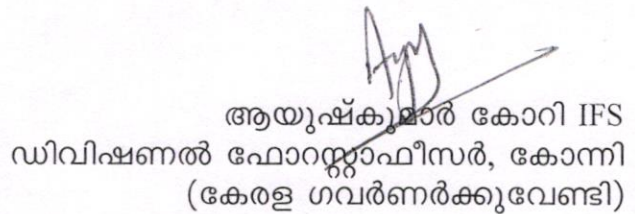 ആയുഷ്കുമാർ കോറി IFS
ഡിവിഷണൽ ഫോറസ്റ്റാഫീസർ, കോന്നി
(കേരള ഗവർണർക്കുവേണ്ടി)